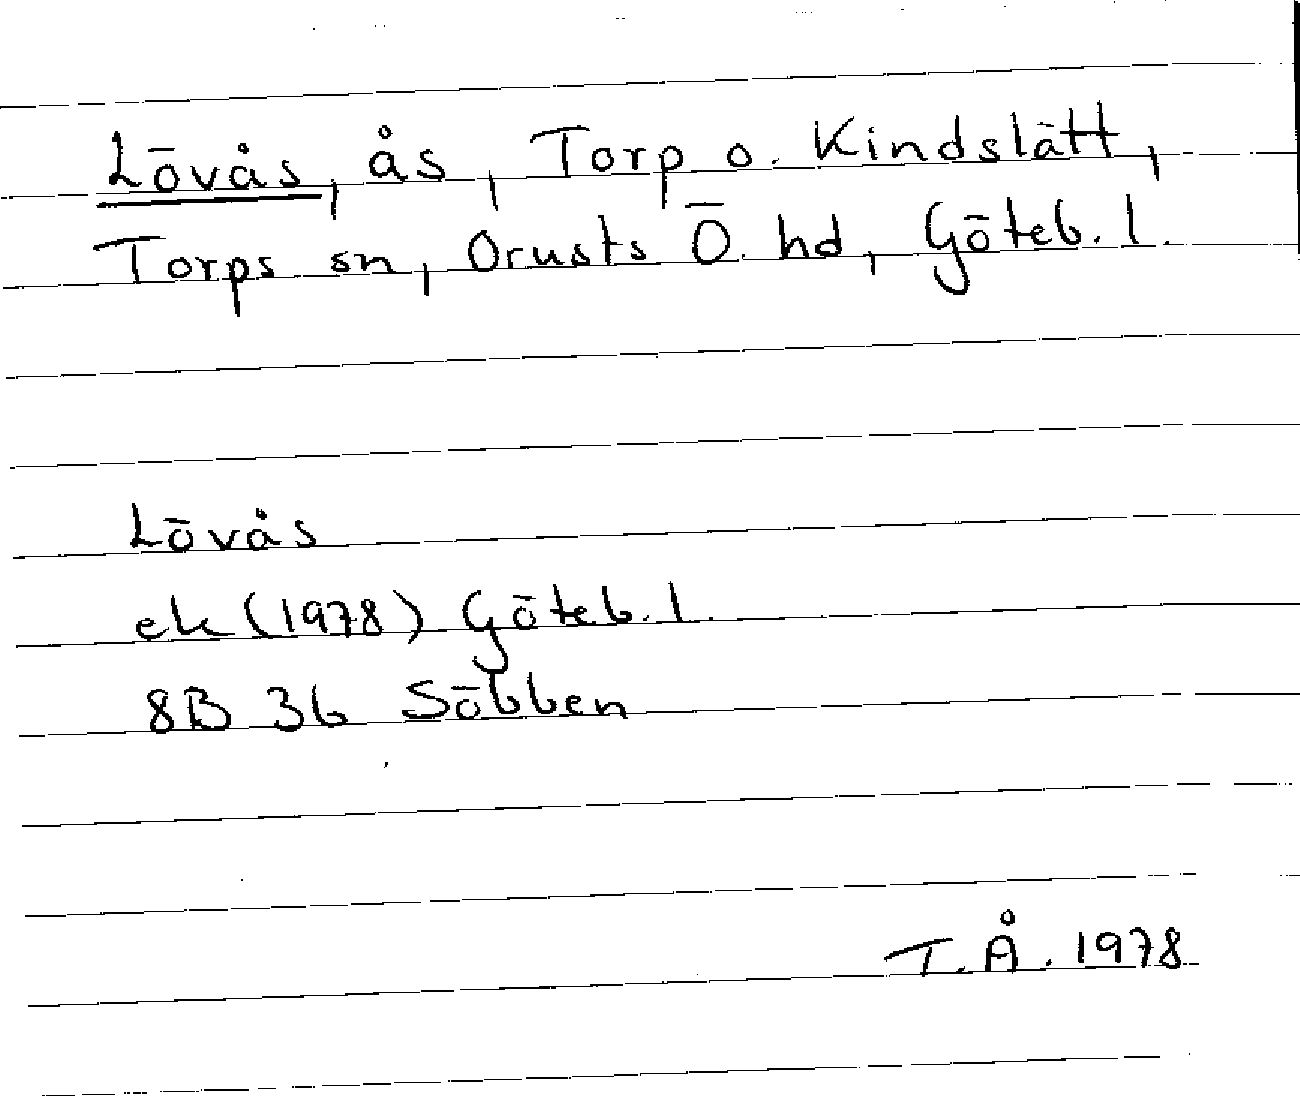 Lövås, ås, Torp o. Kindslätt,
Torps sn, Orusts Ö. hd, Göteb. l.
Lövås
ek (1978) Göteb. l.
8B 3b Söbben
T. Å. 1978